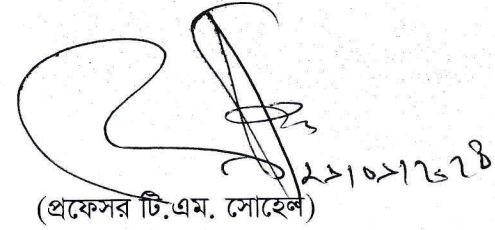 ২১/০১/২০২৪
(প্রফেসর টি.এম. সোহেল)